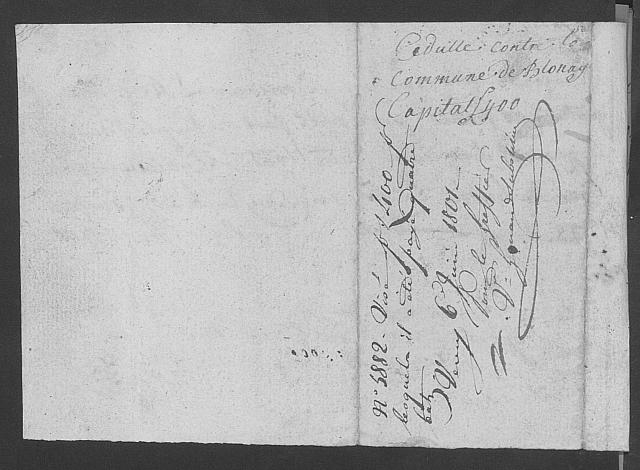 Cedulle contre la
Commune de Blonay
Capital £ 400
N° 5882. Visé p. £ 400 p.
lesquels il a été payé quatre
batz
Vevey 6 Juin 1801
Pour le Greffier